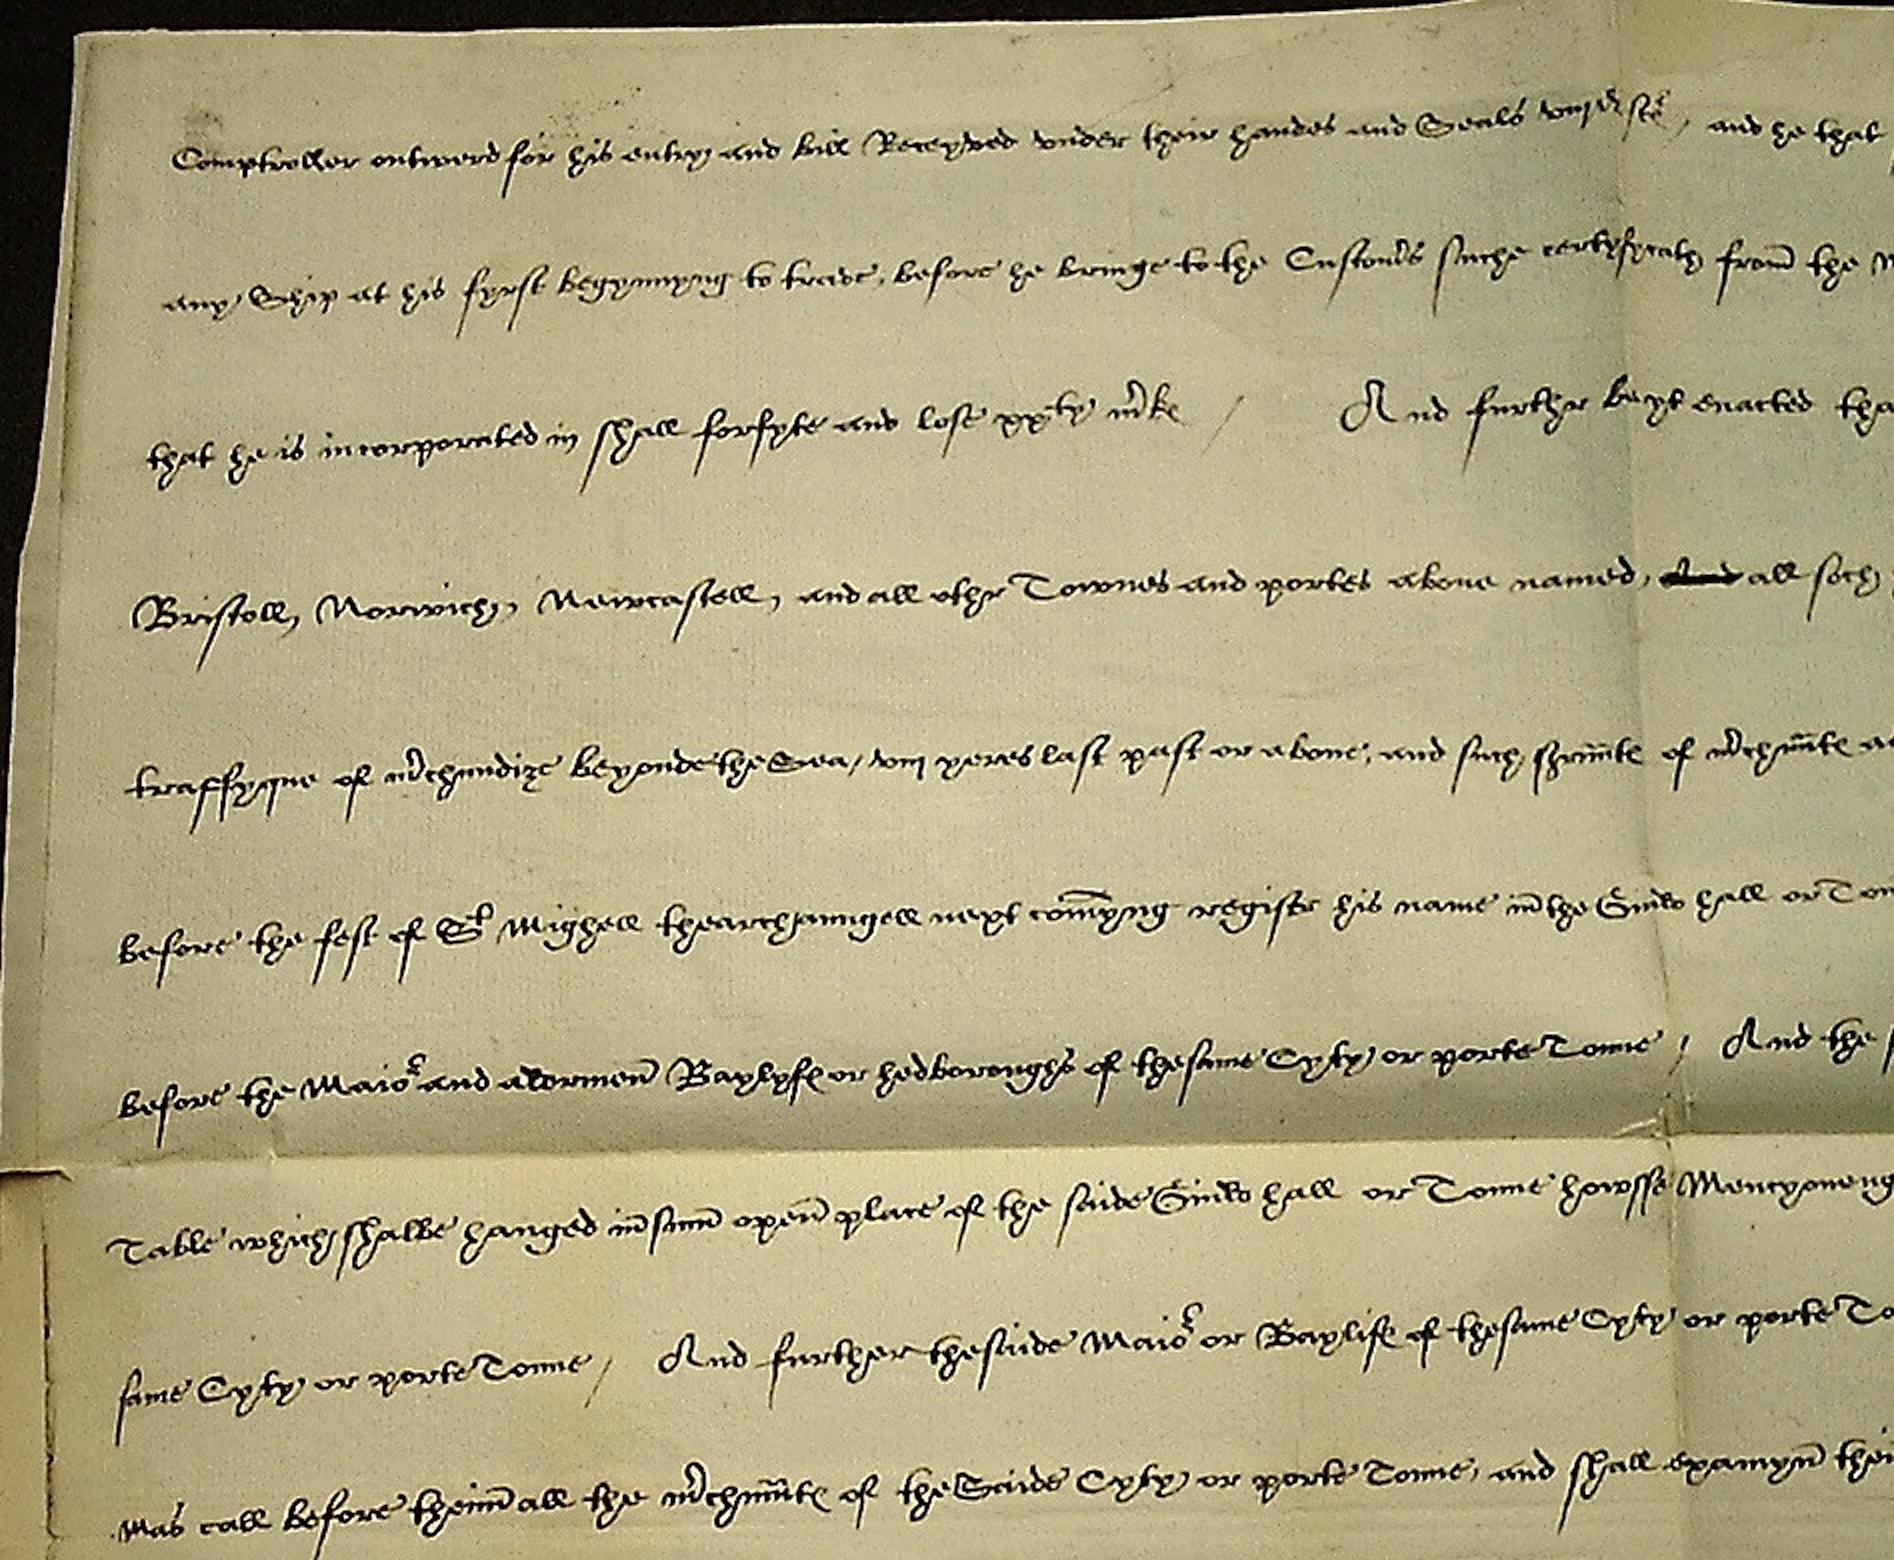 Comptroller outwerd for his entry and bill Receyved under their handes and Seals viij d ste , and he that
any Ship at his fyrst begynnyng to trade, before he bringe to the Custom's suche certyfycath from the
that he is incorporated in shall forfyte and lose xx ty m'kes / And furthr beyt enacted tha
Bristoll, Norwich, Newcastell, and all othr Townes and portes above named, all soch
traffyque of m'chundize beyonde the Sea, viij yeres last past or above, and such s'rũnts of m'chũnts
before the fest of St Mighell tharchaungell next comyng registr his name in the Guild hall or Ton
before the Maior and aldermen Baylyfes or hedboroughs of the same Cyty or porte Toune / And the
Table which shalbe hanged in sum open place of the saide Guild hall or Toune howsse Mencyoneng
same Cyty or porte Toune / And further the saide Maior or Baylifes of the same Cyty or porte To
Mas call before theim all the m'chũnts of the Saide Cyty or porte Toune, and shall examyn thei